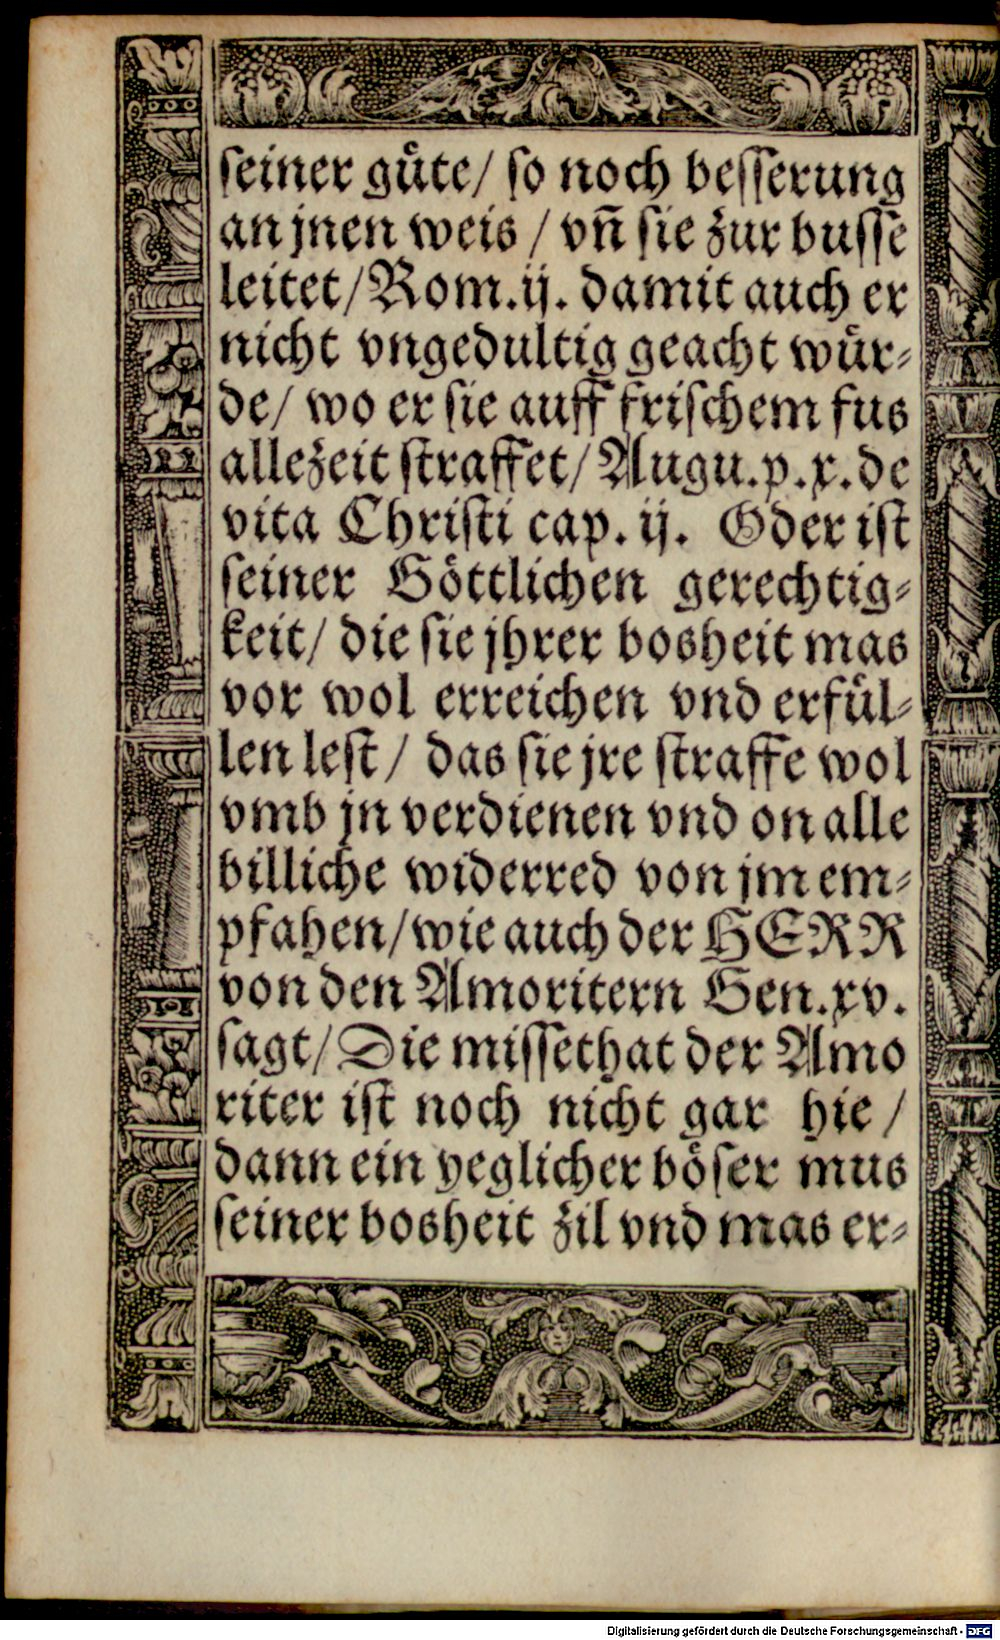 seiner guͤte/ so noch besserung
an jnen weis / vn̄ sie zur busse
leitet/ Rom.ij. damit auch er
nicht vngedultig geacht wuͤr⸗
de/ wo er sie auff frischem fus
allezeit straffet/ Augu.p.x.de
vita Christi cap. ij. Oder ist
seiner Goͤttlichen gerechtig⸗
keit/ die sie jhrer bosheit mas
vor wol erreichen vnd erfuͤl⸗
len lest/ das sie jre straffe wol
vmb jn verdienen vnd on alle
billiche widerred von jm em⸗
pfahen/ wie auch der HERR
von den Amoritern Gen.xv.
sagt/ Die missethat der Amo
riter ist noch nicht gar hie /
dann ein yeglicher boͤser mus
seiner bosheit zil vnd mas er⸗
Digitalisierung gefördert durch die Deutsche Forschungsgemeinschaft - DFG